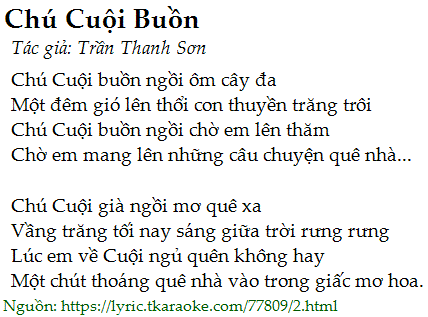 Chú Cuội Buồn
Tác giả: Trần Thanh Sơn
Chú Cuội buồn ngồi ôm cây đa
Một đêm gió lên thổi con thuyền trăng trôi
Chú Cuội buồn ngồi chờ em lên thăm
Chờ em mang lên những câu chuyện quê nhà...
Chú Cuội già ngồi mơ quê xa
Vầng trăng tối nay sáng giữa trời rưng rưng
Lúc em về Cuội ngủ quên không hay
Một chút thoáng quê nhà vào trong giấc mơ hoa.
Nguồn: https://lyric.tkaraoke.com/77809/2.html